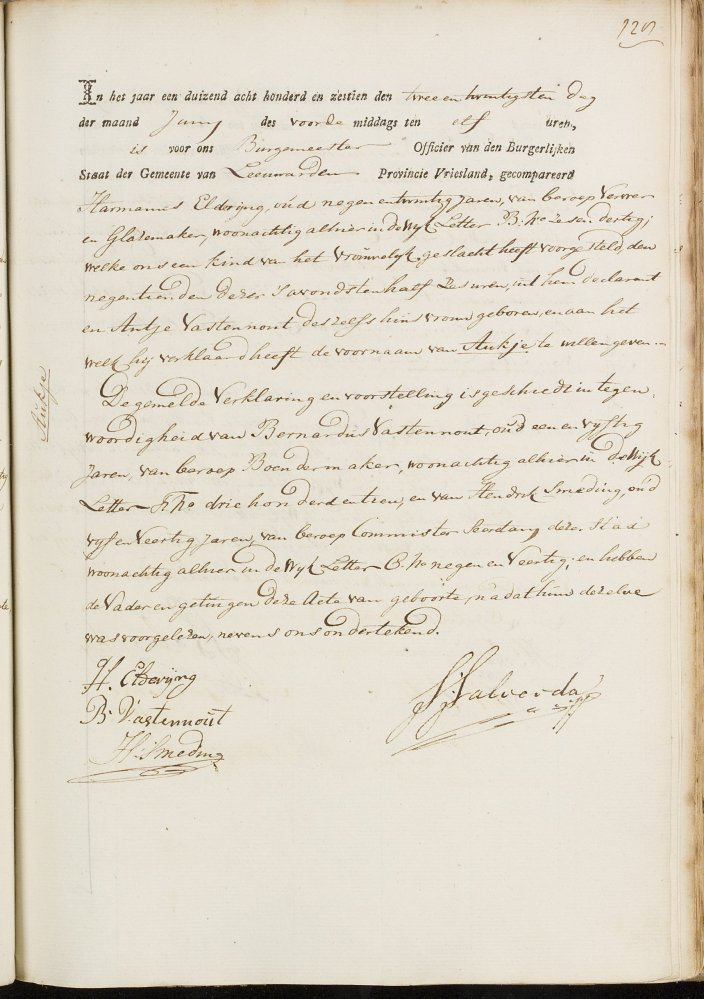 In het jaar een duizend acht honderd en zestien den twee en twintigsten dag
der maand Juny des voorde middags ten elf uren,
is voor ons Burgemeester Officier van den Burgerlijken
Staat der Gemeente van Leeuwarden Provincie Vriesland, gecompareerd
Harmannus Eldryng, oud negen en twintig Jaren, van beroep Verwer
en Glazemaker, woonachtig alhier in de Wyk Letter B. No zes en dertig;
welke ons een kind van het Vrouwelyk geslacht heeft voorgesteld, den
negentienden dezer 's avonds ten half zes uren, uit hem declarant
en Antje Vastennout deszelfs huisvrouw geboren, en aan het
welk hy verklaard heeft de voornaam van Aukje te willen geven.
Aukje
De gemelde Verklaring en voorstelling is geschiedt in tegen
woordigheid van Bernardus Vastennout, oud een en vyftig
Jaren, van beroep Boendermaker, woonachtig alhier in de Wyk
Letter No drie honderd en tien, en van Hendrik Smeding, oud
vyf en Veertig Jaren, van beroep Commister dezer Stad
woonachtig alhier in de Wyk Letter No negen en Veertig; en hebben
de Vader en getuigen deze Acte van geboorte, nadat hun dezelve
was voorgelezen, nevens ons ondertekend.
H. Eldryng
B. Vastennout
H. Smeding